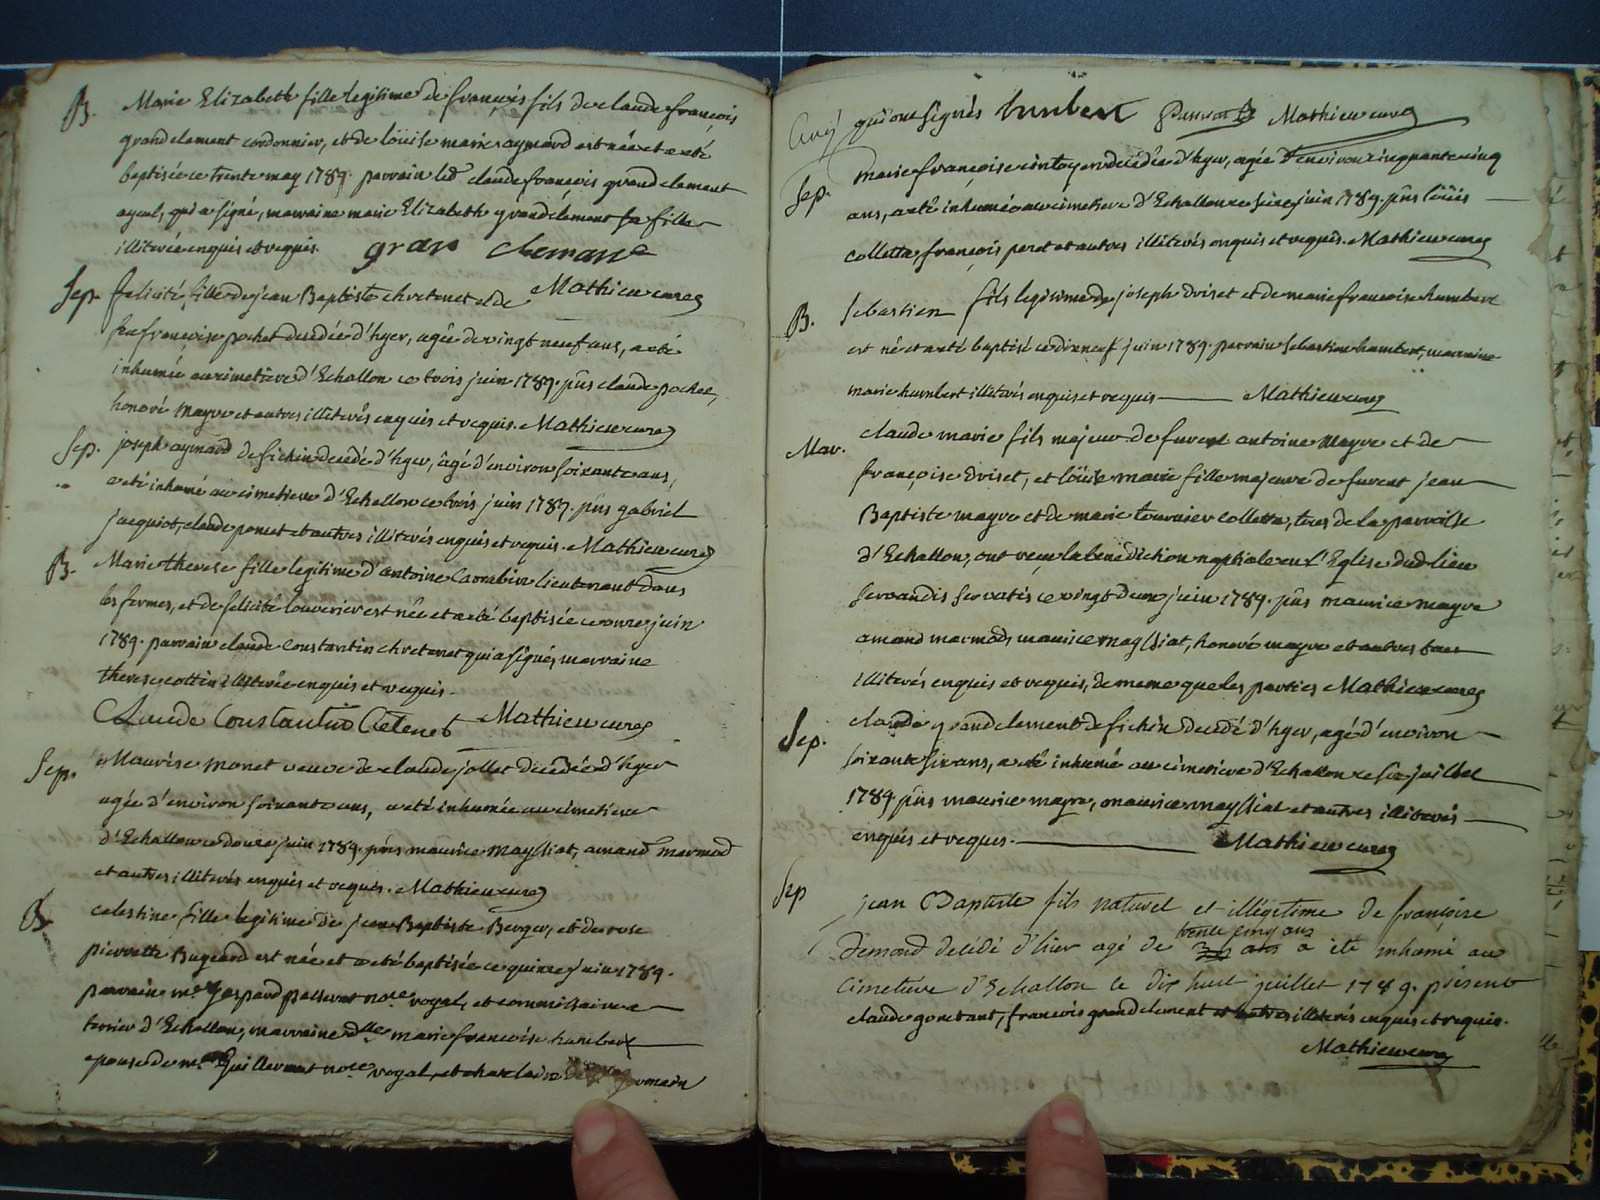 B. Marie Elizabeth fille legitime de françois fils de claude françois
grandclement cordonnier, et de loüise marie aymard est née et a eté
baptisée ce trente may 1789. parrain led claude françois grandclement
ayeul, qui a signé, marraine marie Elizabeth grandclement sa fille
illiterée enquis et requis. gran cleman
Mathieu curé
Sep. felicité fille de jean Baptiste chretenet et de
feu françoise pochet decédée d'hyer, agée de vingt neuf ans, a eté
inhumée au cimetiere d'Echallon ce trois juin 1789. pñs claude pochet,
honoré mayre et autres illiterés enquis et requis. Mathieu curé
Sep. joseph aymard de sichin decédé d'hyer, âgé d'environ soixante ans,
a eté inhumé au cimetiere d'Echallon ce trois juin 1789. pñs gabriel
jacquiot, claude poncet et autres illiterés enquis et requis. Mathieu curé
B. Marie therese fille legitime d'antoine lieutenant dans
les fermes, et de felicité louverier est née et a eté baptisée ce onze juin
1789. parrain claude constantin chretenet qui a signé, marraine
therese cottin illiterée enquis et requis.
Claude Constantin Cretenet Mathieu curé
Sep. Maurise monet veuve de claude jollet decédée d'hyer
agée d'environ soixante ans, a eté inhumée au cimetiere
d'Echallon ce douze juin 1789. pñs maurice mayssiat, amand marmod
et autres illiterés enquis et requis. Mathieu curé
B. celestine fille legitime de jean Baptiste Berger, et de rose
pierrette Bugeard est née et a eté baptisée ce quinze juin 1789.
parrain me gaspard passerat nore royal, et commissaire a
terrier d'Echallon, marraine dlle marie françoise humbert
epouse de me Guillermet nore royal, et chatelain de romain
qui ont signés humbert Passerat Mathieu curé
Sep. marie françoise decédée d'hyer, agée d'environ cinquante cinq
ans, a eté inhumée au cimetiere d'Echallon ce seize juin 1789. pñs loüis
colletta, françois peret et autres illiterés enquis et requis. Mathieu curé
B. Sebastien fils legitime de joseph driset et de marie françoise humbert
est né et a eté baptisé ce dixneuf juin 1789. parrain sebastien humbert, marraine
marie humbert illiterés enquis et requis Mathieu curé
Mar. claude marie fils majeur de furent antoine mayre et de
françoise driset, et loüise marie fille majeure de furent jean
Baptiste mayre et de marie tournier colletta, tous de la parroisse
d'Echallon, ont reçu la benediction nuptiale en l'Eglise dud lieu
servandis servatis ce vingt deux juin 1789. pñs maurice mayre
amand marmod, maurice mayssiat, honoré mayre et autres tous
illiterés enquis et requis, de meme que les parties Mathieu curé
Sep. claude grandclement de sichin decédé d'hyer, agé d'environ
soixante six ans, a eté inhumé au cimetiere d'Echallon ce six juillet
1789 pñs maurice mayre, maurice mayssiat et autres illiterés
enquis et requis. Mathieu curé
Sep jean Baptiste fils naturel et illégitime de françoise
trente cinq ans
demond decédé d'hier agé de ans a été inhumé au
cimetiere d'Echallon ce dix huit juillet 1789. présent
claude gonetant, françois grandclement et autres illiterés enquis et requis.
Mathieu curé